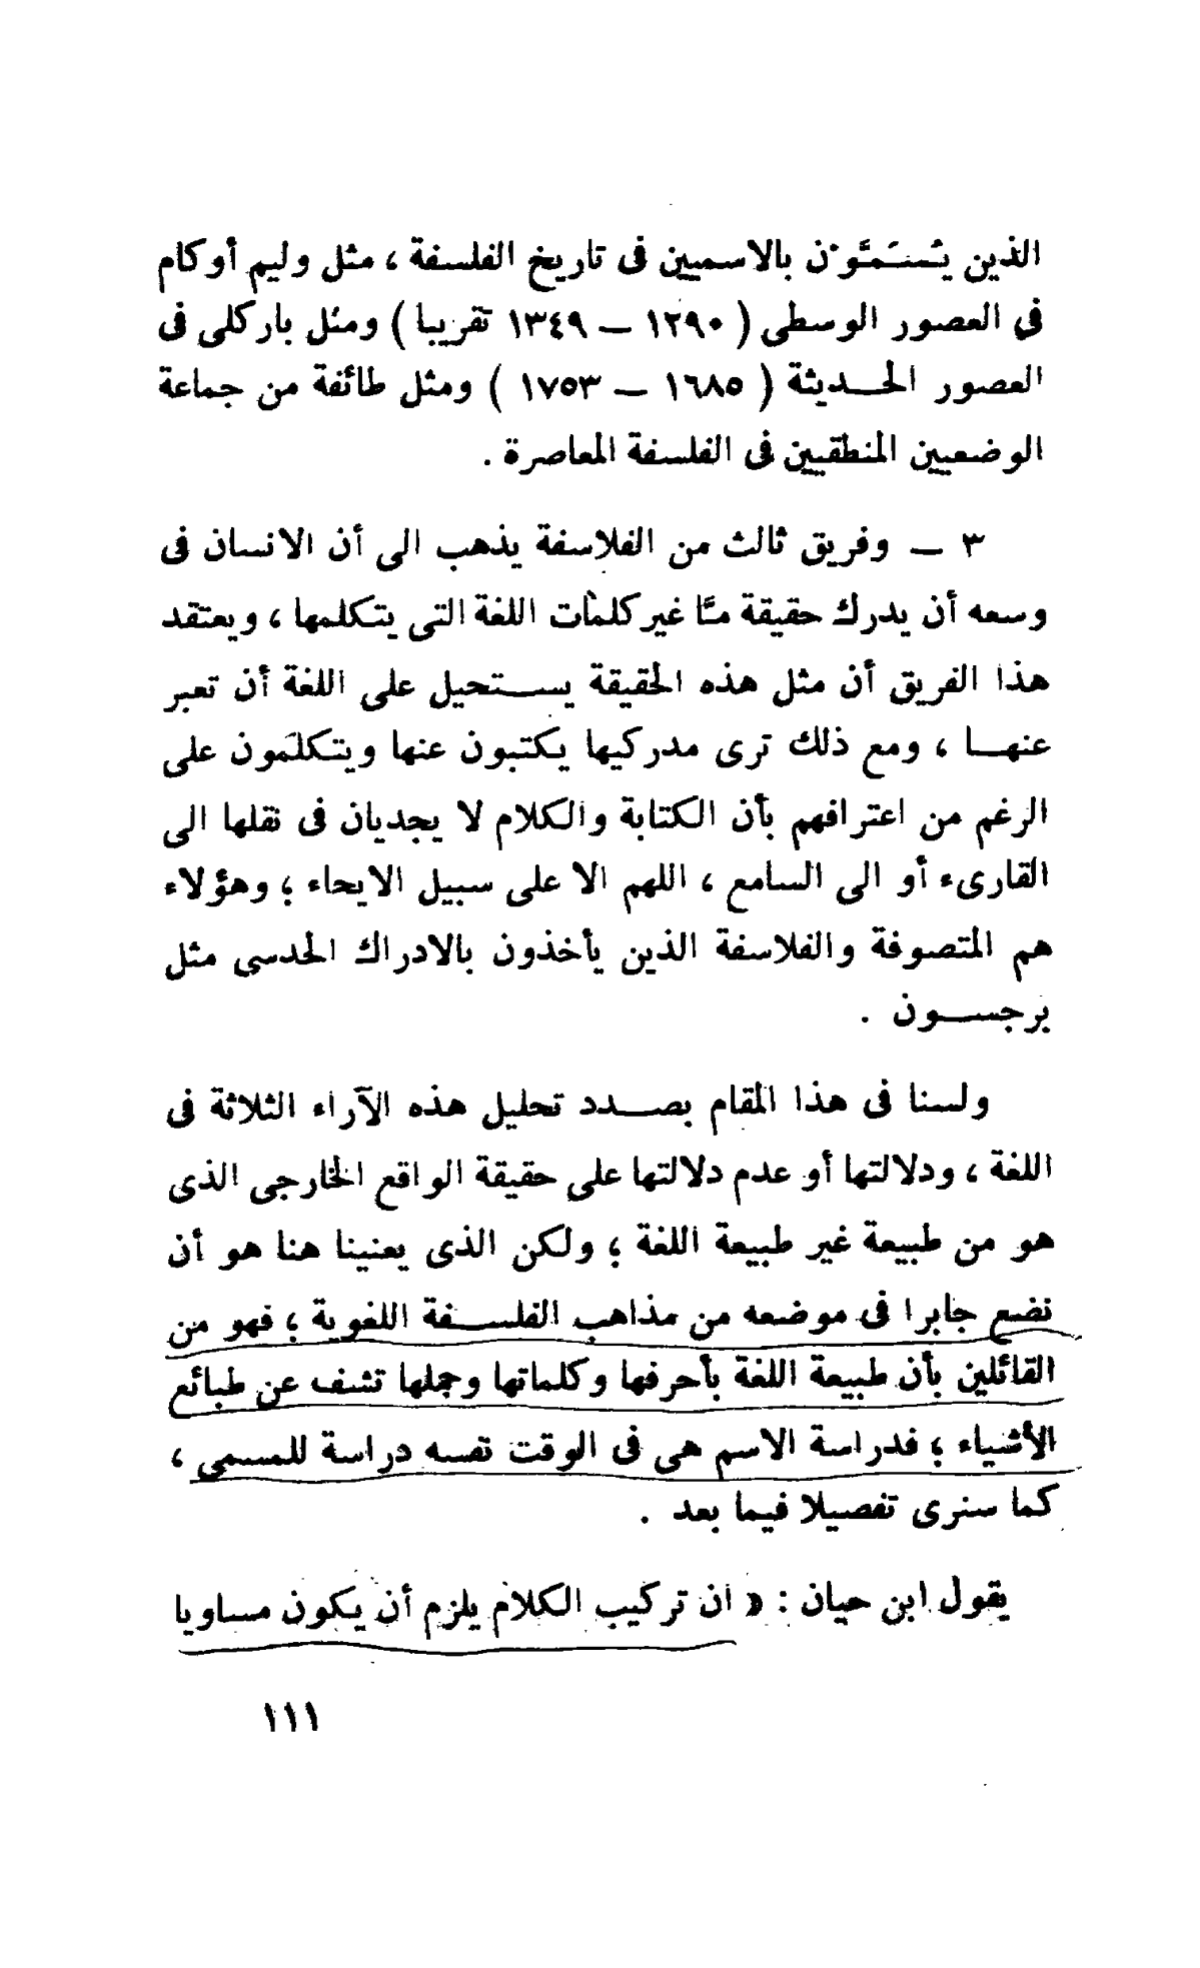 الذين يُسَمَّوْن بالاسميين فى تاريخ الفلسفة ، مثل وليم أوكام
فى العصور الوسطى ( ١٢٩٠ – ١٣٤٩ تقريبا ) ومثل باركلى فى
العصور الحديثة ( ١٦٨٥ – ١٧٥٣ ) ومثل طائفة من جماعة
الوضعيين المنطقيين فى الفلسفة المعاصرة .
٣ – وفريق ثالث من الفلاسفة يذهب الى أن الانسان فى
وسعه أن يدرك حقيقة مَّا غير كلمات اللغة التى يتكلمها ، ويعتقد
هذا الفريق أن مثل هذه الحقيقة يستحيل على اللغة أن تعبر
عنها ، ومع ذلك ترى مدركيها يكتبون عنها ويتكلمون على
الرغم من اعترافهم بأن الكتابة والكلام لا يجديان فى نقلها الى
القارىء أو الى السامع ، اللهم الا على سبيل الايحاء ؛ وهؤلاء
هم المتصوفة والفلاسفة الذين يأخذون بالادراك الحدسى مثل
برجسون .
ولسنا فى هذا المقام بصدد تحليل هذه الآراء الثلاثة فى
اللغة ، ودلالتها أو عدم دلالتها على حقيقة الواقع الخارجى الذى
هو من طبيعة غير طبيعة اللغة ؛ ولكن الذى يعنينا هنا هو أن
نضع جابرا فى موضعه من مذاهب الفلسفة اللغوية ؛ فهو من
القائلين بأن طبيعة اللغة بأحرفها وكلماتها وجملها تشف عن طبائع
الأشياء ؛ فدراسة الاسم هى فى الوقت نفسه دراسة للمسمى ،
كما سنرى تفصيلا فيما بعد .
يقول ابن حيان : « ان تركيب الكلام يلزم أن يكون مساويا
١١١